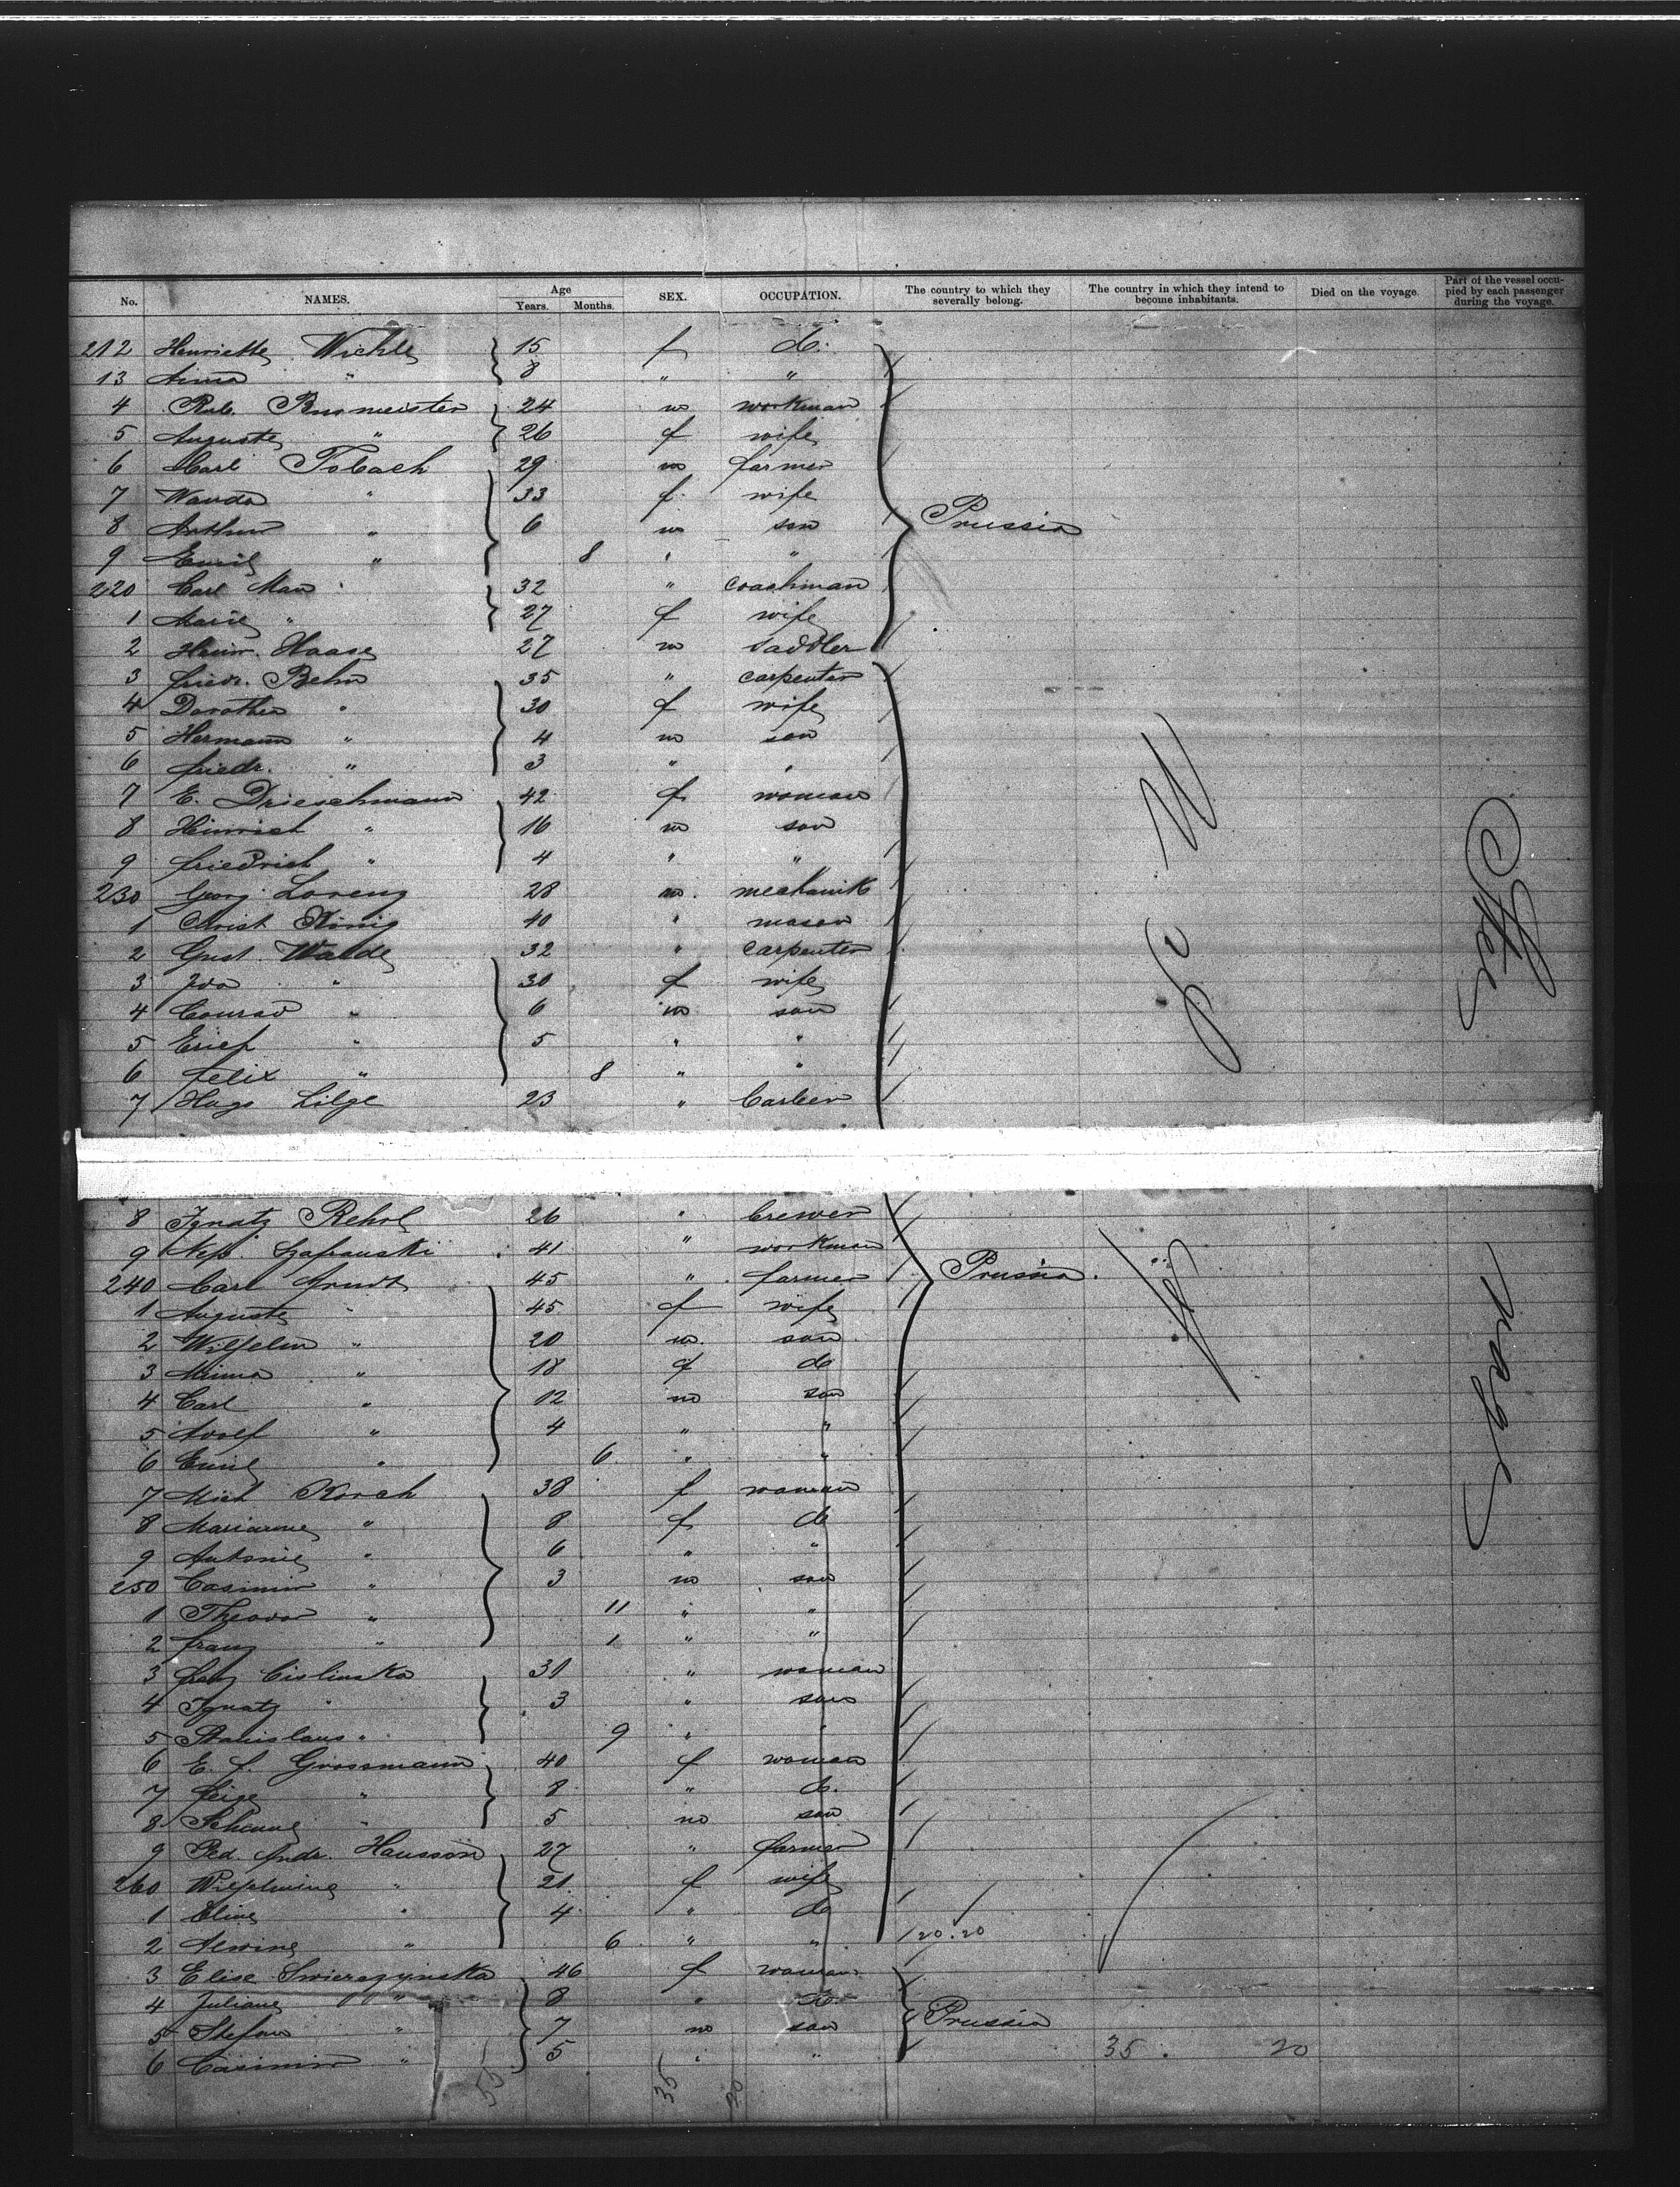 No. NAMES. Age Years. Months. SEX. OCCUPATION. The country to which they severally belong. The country in which they intend to become inhabitants. Died on the voyage. Part of the vessel occupied by each passenger during the voyage.
212 Henriette Wichle 15 f do.
13 Anna " 8 " "
4 Rub. Burmeister 24 m workman
5 Auguste " 26 f wife
6 Carl Tobach 29 m farmer
7 Wanda " 33 f wife
8 Arthur " 6 m son Prussia
9 Emil " 8 " "
220 Carl Man 32 " coachman
1 Marie " 27 f wife
2 Heinr. Haase 27 m saddler
3 Friedr. Behm 35 " carpenter
4 Dorothea " 30 f wife
5 Hermann " 4 m son
6 Friedr. " 3 " "
7 E. Drieschmann 42 f woman
8 Heinrich " 16 m son
9 Friedrich " 4 " "
230 Georg Lorenz 28 m. mechanik
1 Christ. König 40 " mason
2 Gust. Walde 32 " carpenter
3 Ida " 30 f wife
4 Conrad " 6 m son
5 Erich " 5 " "
6 Felix " 8 " "
7 Hugo Lilge 23 " barber
8 Ignatz Rehol 26 " brewer
9 Nep. Szafranski 41 " workman
240 Carl Arndt 45 " farmer Prussia.
1 Auguste " 45 f wife
2 Wilhelm " 20 m son
3 Minna " 18 f do
4 Carl " 12 m son
5 Adolf " 4 " "
6 Emil " 6 " "
7 Mich Korch 38 f woman
8 Marianne " 8 f do
9 Antonie " 6 " "
250 Casimir " 3 m son
1 Theodor " 11 " "
2 Franz " 1 " "
3 Franz Cislinska 31 " woman
4 Ignatz " 3 " son
5 Stanislaus " 9 " "
6 E. F. Grossmann 40 f woman
7 Feige " 8 " do.
8 " 5 m son
9 Ped. Andr. Hansson 27 " farmer
260 Wilhelmine " 21 f wife
1 Eline " 4 " do
2 Alwine " 6 " " 20.20
3 Elise Swierczynska 46 f woman
4 Juliane " 8 " do.
5 Stefan " 7 m son Prussia
6 Casimir " 5 " " 35. 20
55 35 20